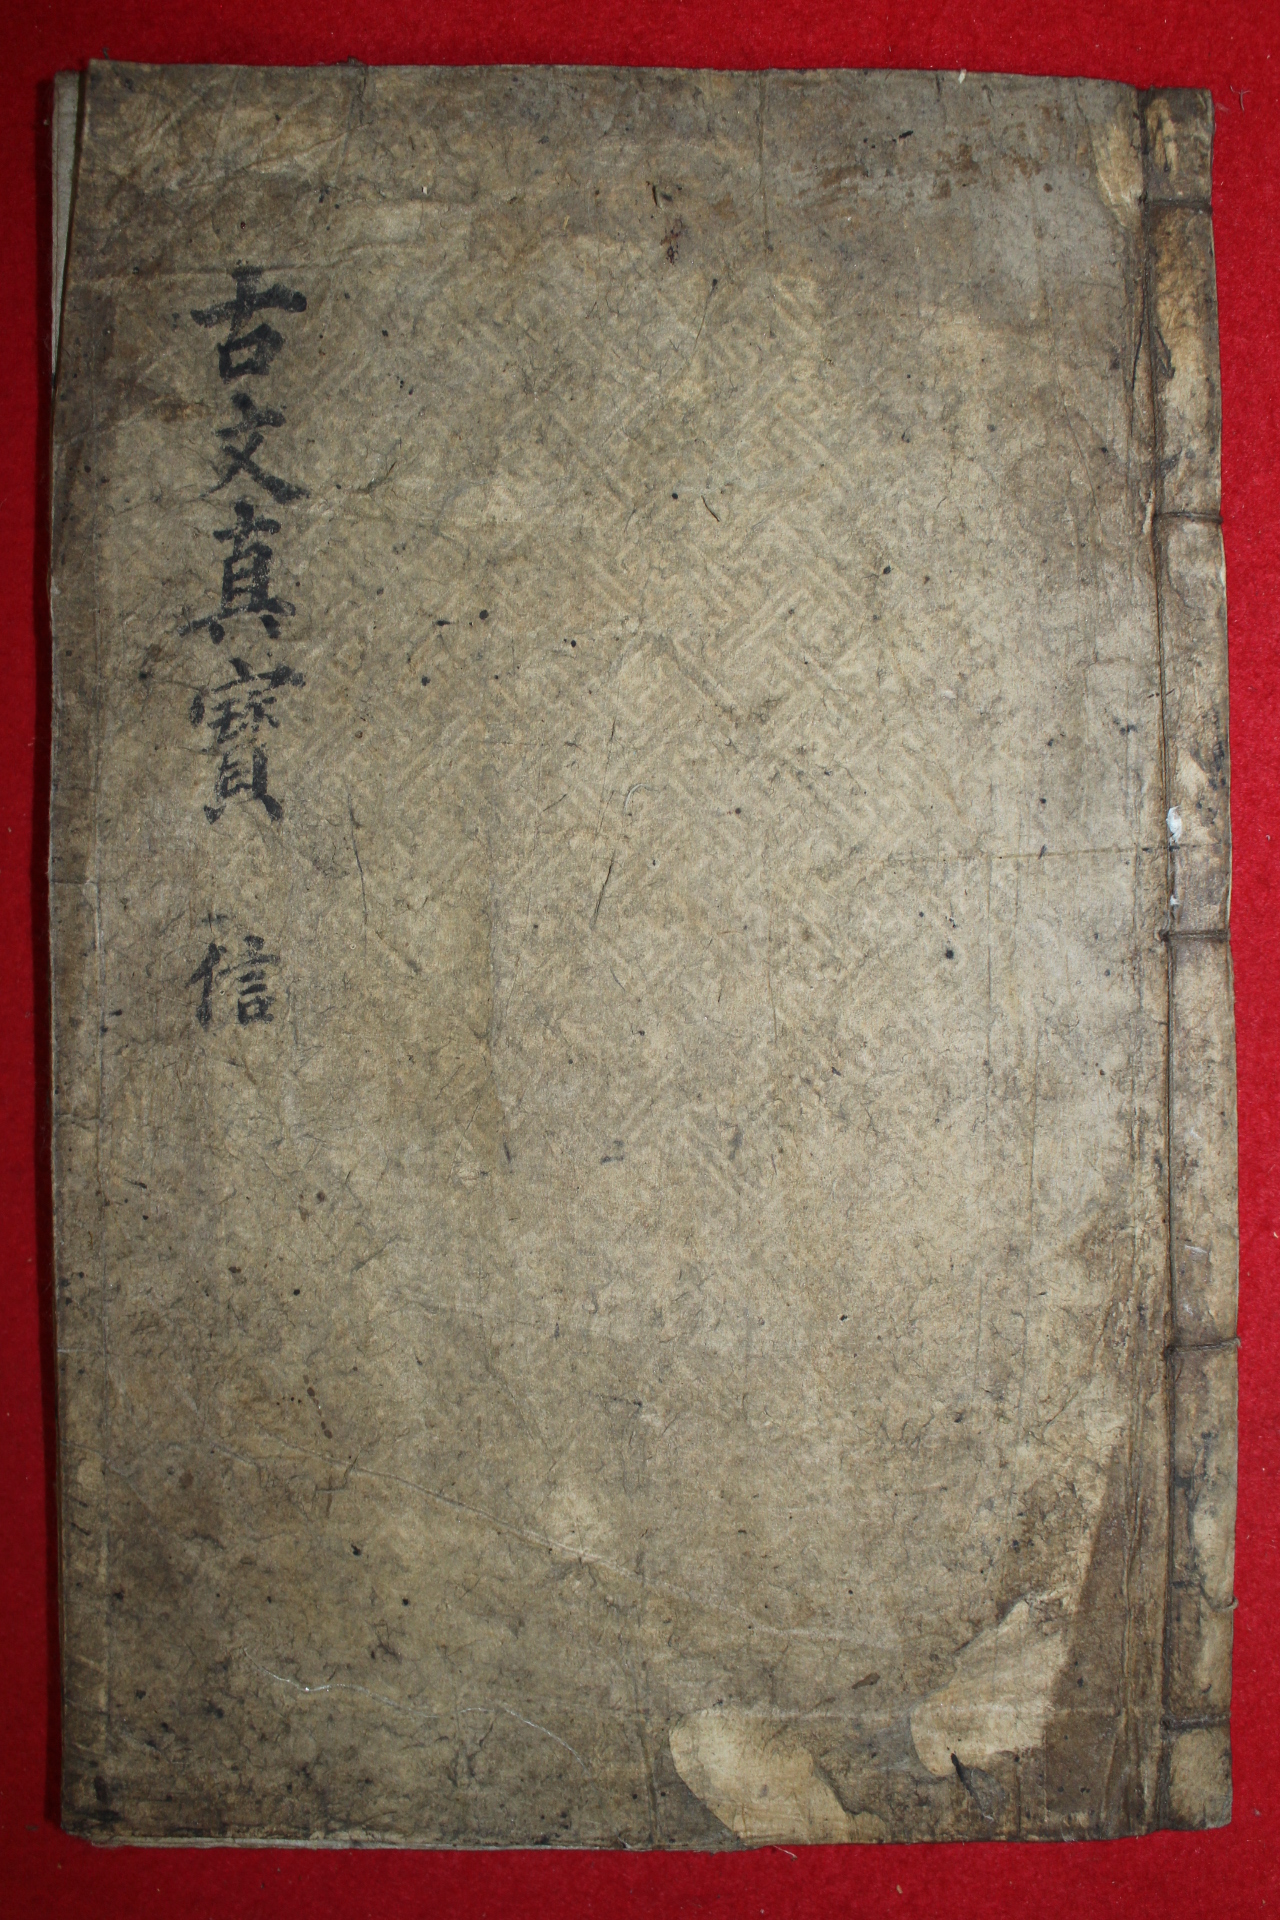 古文眞寶 信